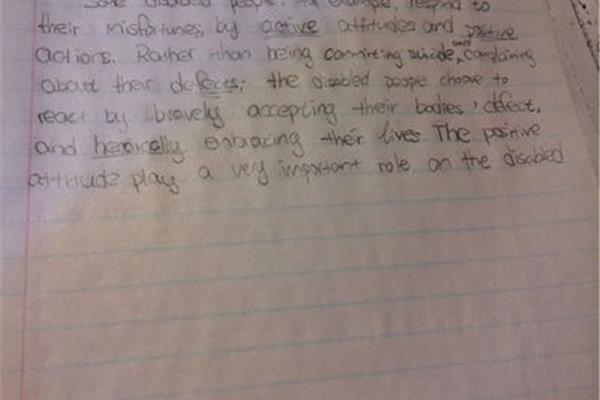 Some disabled people, for example, respond to
their misfortunes, by active attitudes and positive
actions. Rather than being committing suicide, and complaining
about their defeces; the disabled people choose to
react by bravely accepting their bodies' defect,
and heroically enbracing their lives The positive
attitude play a very important role on the disabled